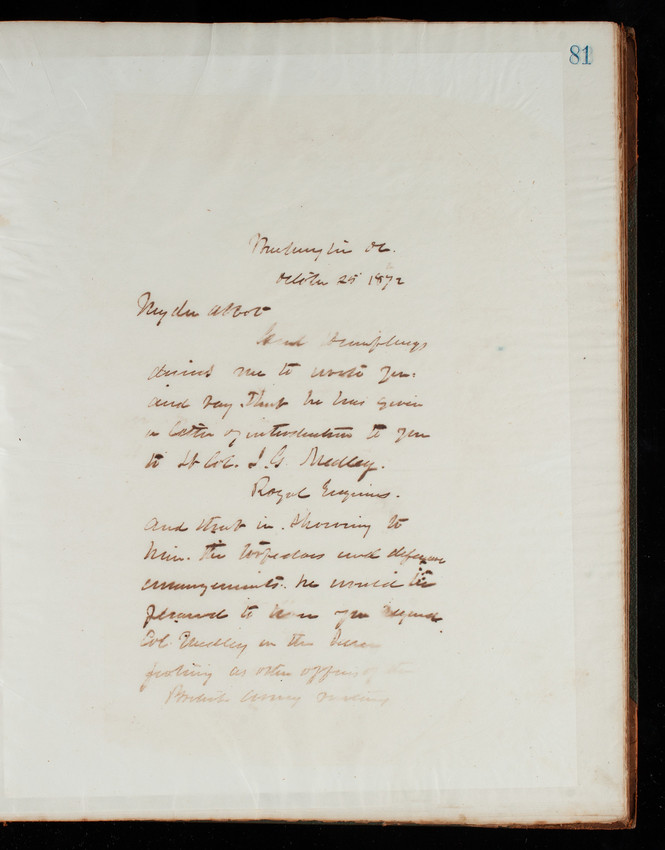 81
Washington DC.
October 25 1872
My dear Abbot
Genl Humphreys
desires me to write you.
and say that he has given
a letter of introduction to you
to Lt Col. J. G. Medley.
Royal Engineers.
and that in showing to
him the torpedoes and defensive
arrangements. he would be
pleased to have you regard
Col Medley on the same
footing as other officers of the
British Army visiting